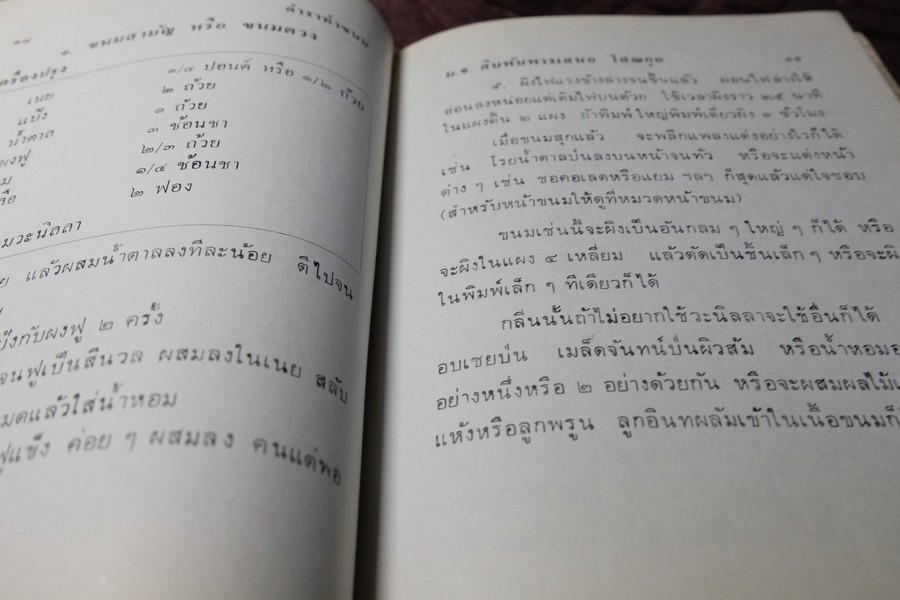 ๑๔ ตำราทำขนม
๑. ขนมสามัญ หรือ ขนมตวง
เครื่องปรุง
เนย ๑/๔ ปอนด์ หรือ ๑/๒ ถ้วย
แป้ง ๒ ถ้วย
น้ำตาล ๑ ถ้วย
ผงฟู ๓ ช้อนชา
ม ๒/๓ ถ้วย
ลือ ๑/๔ ช้อนชา
๒ ฟอง
มวะนิลลา
ย แล้วผสมน้ำตาลลงทีละน้อย ตีไปจน
ป้งกับผงฟู ๒ ครั้ง
จนฟูเป็นสีนวล ผสมลงในเนย สลับ
มดแล้วใส่น้ำหอม
ฟูแข็ง ค่อย ๆ ผสมลง คนแต่พอ
ม.จ. สิบพันพารเสนอ โสณกุล ๑๕
๕. ผิงไฟแรงข้างล่างจนขึ้นแล้ว ผ่อนไฟล่างให้
อ่อนลงหน่อยแต่เติมไฟบนด้วย ใช้เวลาผิงราว ๒๕ นาที
ในแผงตื้น ๒ แผง ถ้าพิมพ์ใหญ่พิมพ์เดียวผิง ๑ ชั่วโมง
เมื่อขนมสุกแล้ว จะพลิกแพลงแต่งอย่างไรก็ได้
เช่น โรยน้ำตาลป่นลงบนหน้าจนทั่ว หรือจะแต่งหน้า
ต่าง ๆ เช่น ชอคอเลตหรือแยม ฯลฯ ก็สุดแล้วแต่ใจชอบ
(สำหรับหน้าขนมให้ดูที่หมวดหน้าขนม)
ขนมเช่นนี้จะผิงเป็นอันกลม ๆ ใหญ่ ๆ ก็ได้ หรือ
จะผิงในแผง ๔ เหลี่ยม แล้วตัดเป็นชิ้นเล็ก ๆ หรือจะผิ
ในพิมพ์เล็ก ๆ ทีเดียวก็ได้
กลิ่นนั้นถ้าไม่อยากใช้วะนิลลาจะใช้อื่นก็ได้
อบเชยป่น เมล็ดจันทน์ป่นผิวส้ม หรือน้ำหอมอ
อย่างหนึ่งหรือ ๒ อย่างด้วยกัน หรือจะผสมผลไม้แ
แห้งหรือลูกพรูน ลูกอินทผลัมเข้าในเนื้อขนมก็